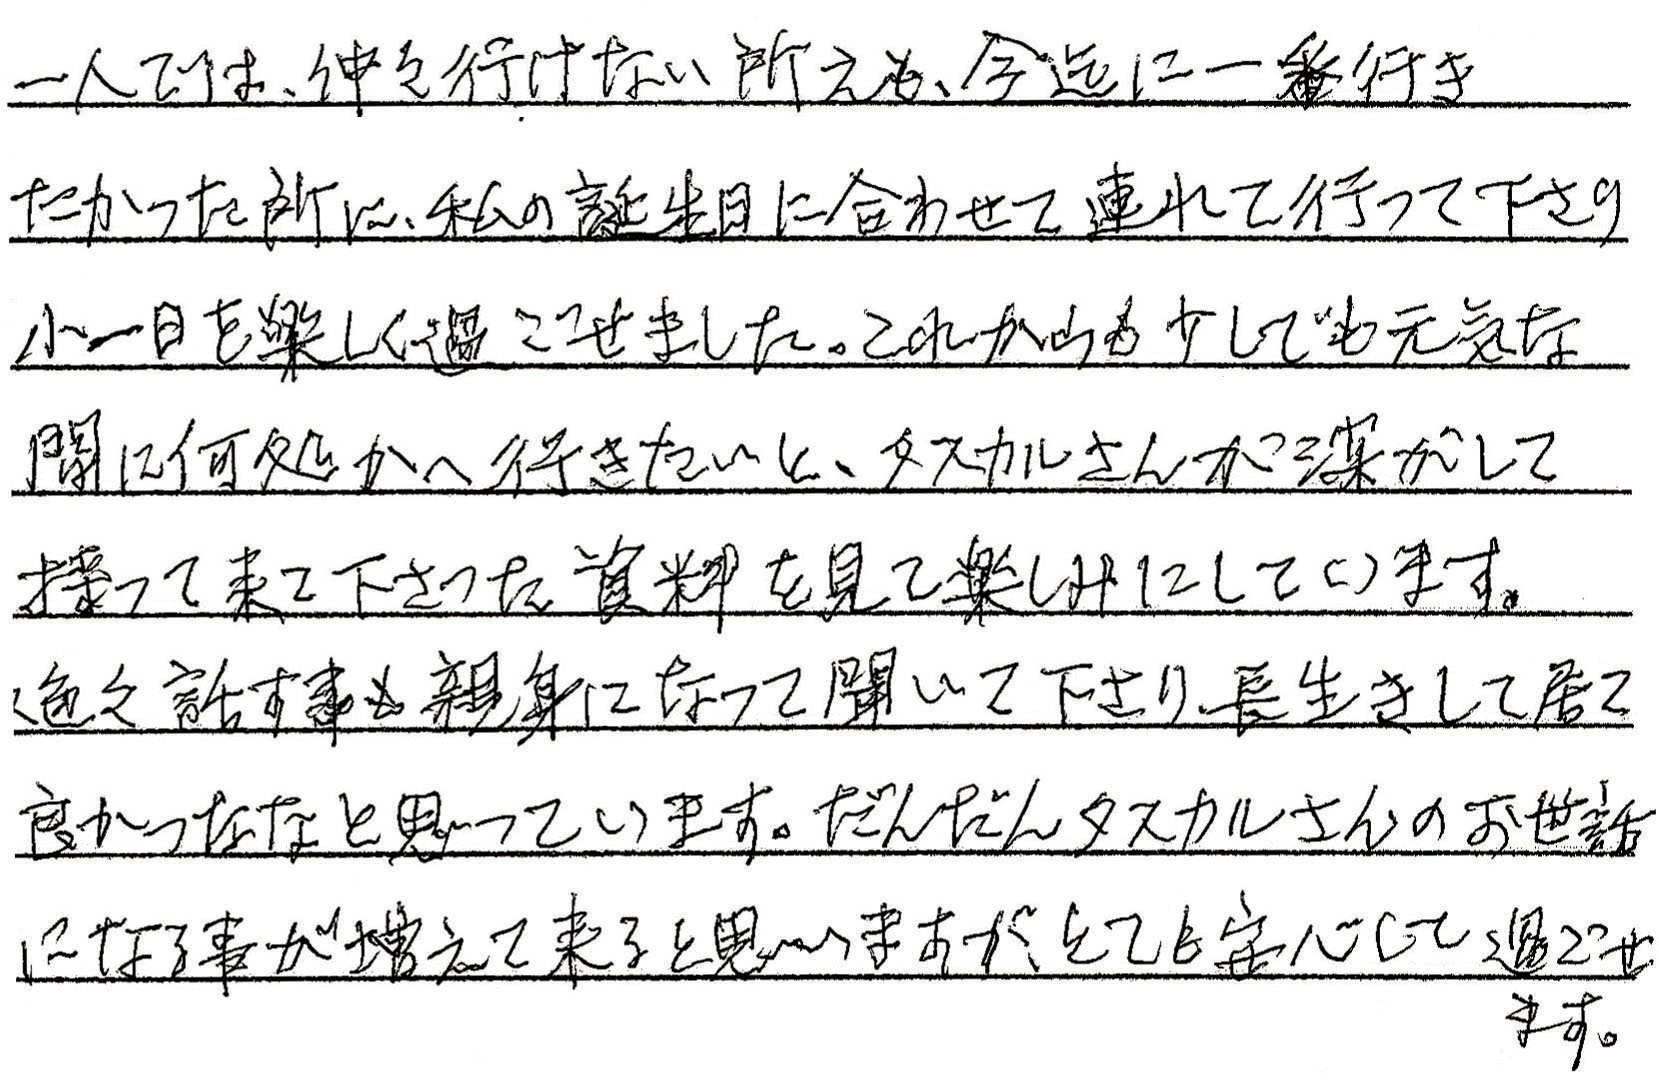 一人では、仲々行けない所えも、今迄に一番行き
たかった所に、私の誕生日に合わせて連れて行って下さり
小一日を楽しく過ごせました。これからも少しでも元気な
間に何処かへ行きたいと、タスカルさんが探がして
持って来て下さった資料を見て楽しみにしています。
色々話す事も親身になって聞いて下さり、長生きして居て
良かったなと思っています。だんだんタスカルさんのお世話
になる事が増えて来ると思いますが、とても安心して過ごせ
ます。